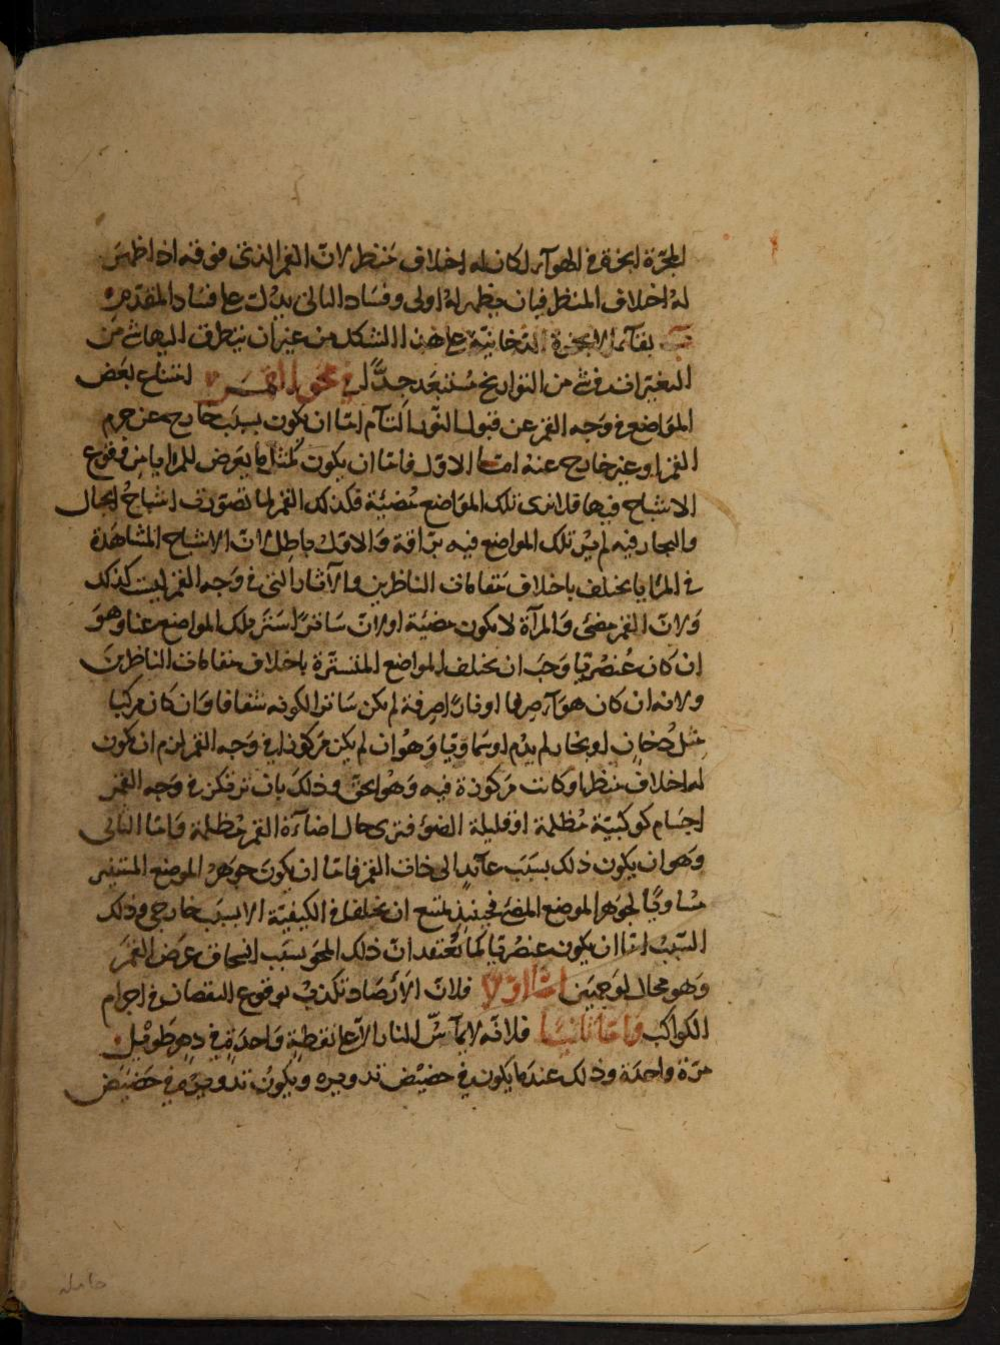 المجرة ابخرة في الهوآء لكان له اختلاف منظر لان القمر الذي فوقه اذا ظهر
له اختلاف المنظر فبان يظهر له اولى وفساد التالي يدل على فساد المقدم
بقآء الابخرة الدخانية على هذا الشكل من غير ان يتطرق اليها شئ من
التغير اف في من التواريخ مستبعد جدًّا في محو القمر امتناع بعض
المواضع في وجه القمر عن قبول النور التآم اما ان يكون بسبب خارج عن جرم
القمر او غير خارج عنه اما الاول فاما ان يكون لمثل ما يعرض للمرايا من وقوع
الاشباح فيها فلا نرى تلك المواضع مضيئة فكذلك القمر لما تصورت اشباح الجبال
والبحار فيه لم ير تلك المواضع فيه براقة والاول باطل لان الاشباح المشاهدة
في المرايا يختلف باختلاف مقامات الناظرين والآثار التي في وجه القمر ليست كذلك
ولان القمر مضئ والمرآة لا يكون مضيئة او لان ساترًا ستر تلك المواضع عنا وهو
ان كان عنصريا وجب ان يختلف المواضع المتسترة باختلاف مقامات الناظرين
ولانه ان كان هوآء صرفا او نارا صرفة لم يكن ساترا لكونه شفافا وان كان مركبا
مثل دخان او بخار لم يدم او سماويا وهو ان لم يكن مركوزا في وجه القمر لزم ان يكون
له اختلاف منظر او كانت مركوزة فيه وهو الحق وذلك بان يرتكز في وجه القمر
اجسام كوكبية مظلمة او قليلة الضوء فترى حال اضاءة القمر مظلمة واما الثاني
وهو ان يكون ذلك بسبب عائد الى ذات القمر فاما ان يكون جوهر الموضع المستنير
مساويًا لجوهر الموضع المضئ فحينئذ يمتنع ان يختلفا في الكيفية الا بسبب خارجي وذلك
السبب اما ان يكون عنصريا كما يعتقد ان ذلك المحو بسبب انسحاق عرض القمر
وهو محال لوجهين اما اولا فلان الأرصاد تكذب بوقوع النقصان في اجرام
الكواكب واما ثانيا فلانه لا يماس النار الا على نقطة واحدة في دهر طويل
مرة واحدة وذلك عندما يكون في حضيض تدويره ويكون تدويره في حضيض
حامله